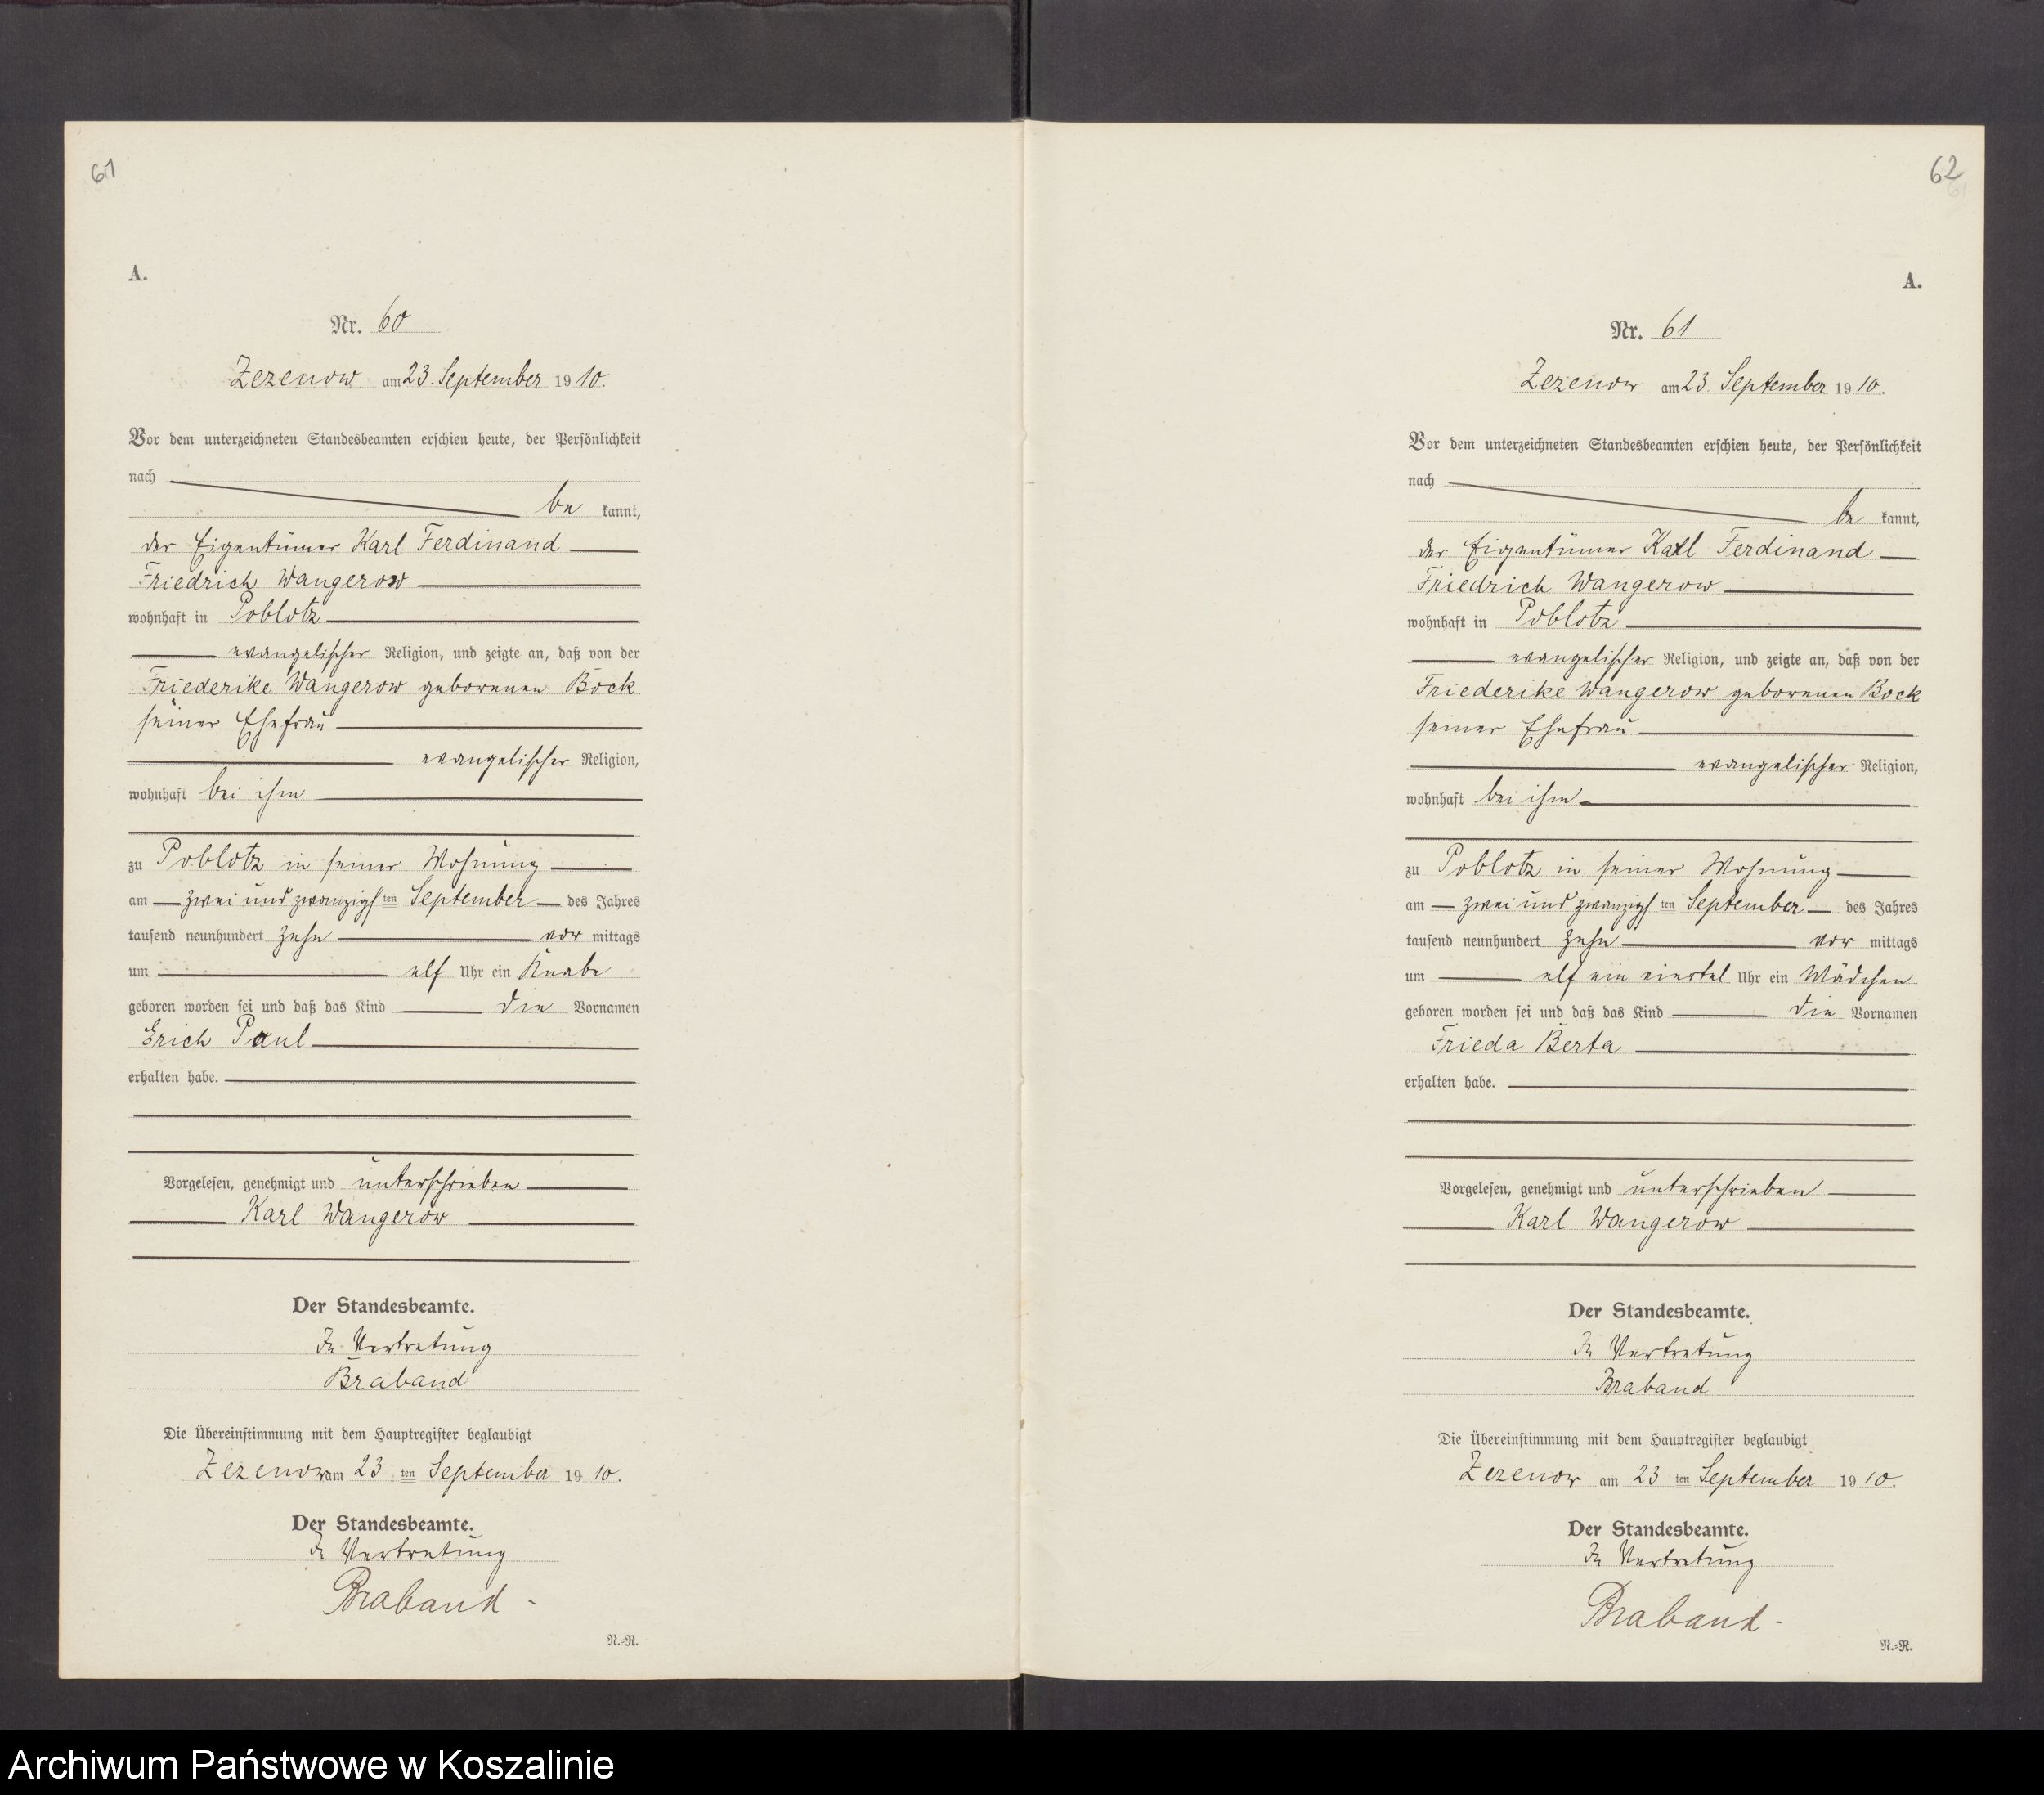 61
A.
Nr. 60
Zezenow am 23. September 1910.
Vor dem unterzeichneten Standesbeamten erschien heute, der Persönlichkeit
nach
be kannt,
der Eigentümer Karl Ferdinand
Friedrich Wangerow
wohnhaft in Poblotz
evangelischer Religion, und zeigte an, daß von der
Friederike Wangerow geborenen Bock
seiner Ehefrau
evangelischer Religion,
wohnhaft bei ihm
zu Poblotz in seiner Wohnung
am zwei und zwanzigsten September des Jahres
tausend neunhundert zehn vor mittags
um elf Uhr ein Knabe
geboren worden sei und daß das Kind die Vornamen
Erich Paul
erhalten habe.
Vorgelesen, genehmigt und unterschrieben
Karl Wangerow
Der Standesbeamte.
In Vertretung
Braband
Die Übereinstimmung mit dem Hauptregister beglaubigt
Zezenow am 23 ten September 1910.
Der Standesbeamte.
In Vertretung
Braband
N.=R.
62
61
A.
Nr. 61
Zezenow am 23. September 1910.
Vor dem unterzeichneten Standesbeamten erschien heute, der Persönlichkeit
nach
be kannt,
der Eigentümer Karl Ferdinand
Friedrich Wangerow
wohnhaft in Poblotz
evangelischer Religion, und zeigte an, daß von der
Friederike Wangerow geborenen Bock
seiner Ehefrau
evangelischer Religion,
wohnhaft bei ihm
zu Poblotz in seiner Wohnung
am zwei und zwanzigsten September des Jahres
tausend neunhundert zehn vor mittags
um elf ein viertel Uhr ein Mädchen
geboren worden sei und daß das Kind die Vornamen
Frieda Berta
erhalten habe.
Vorgelesen, genehmigt und unterschrieben
Karl Wangerow
Der Standesbeamte.
In Vertretung
Braband
Die Übereinstimmung mit dem Hauptregister beglaubigt
Zezenow am 23 ten September 1910.
Der Standesbeamte.
In Vertretung
Braband
N.=R.
Archiwum Państwowe w Koszalinie